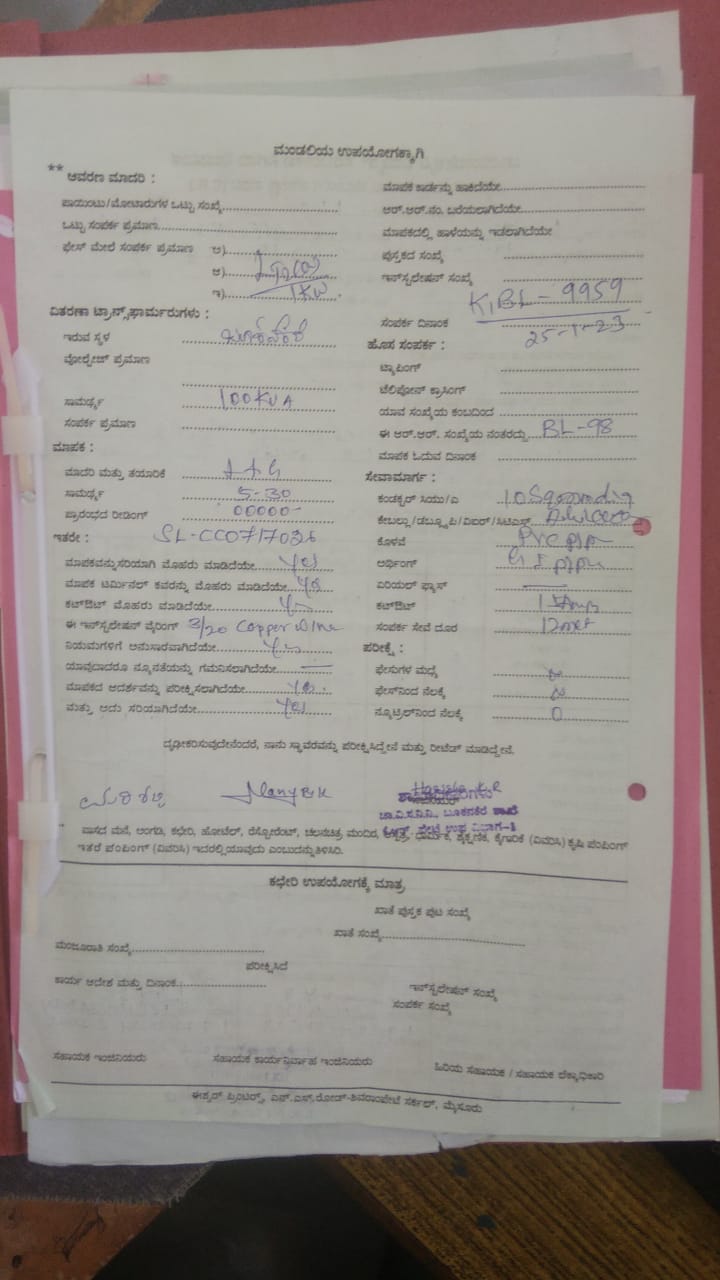 ಮಂಡಲಿಯ ಉಪಯೋಗಕ್ಕಾಗಿ
** ಆವರಣ ಮಾದರಿ :
ಪಾಯಿಂಟು/ಮೋಟಾರುಗಳ ಒಟ್ಟು ಸಂಖ್ಯೆ
ಒಟ್ಟು ಸಂಪರ್ಕ ಪ್ರಮಾಣ
ಫೇಸ್ ಮೇಲೆ ಸಂಪರ್ಕ ಪ್ರಮಾಣ ಅ)
ಆ)
ಇ) 1KW
ವಿತರಣಾ ಟ್ರಾನ್ಸ್‌ಫಾರ್ಮರುಗಳು :
ಇರುವ ಸ್ಥಳ
ವೋಲ್ಟೇಜ್ ಪ್ರಮಾಣ
ಸಾಮರ್ಥ್ಯ 100KVA
ಸಂಪರ್ಕ ಪ್ರಮಾಣ
ಮಾಪಕ :
ಮಾದರಿ ಮತ್ತು ತಯಾರಿಕೆ L+G
ಸಾಮರ್ಥ್ಯ 5-30
ಪ್ರಾರಂಭದ ರೀಡಿಂಗ್ 00000-
ಇತರೇ : SL-CC0717026
ಮಾಪಕವನ್ನು ಸರಿಯಾಗಿ ಮೊಹರು ಮಾಡಿದೆಯೇ Yes
ಮಾಪಕ ಟರ್ಮಿನಲ್ ಕವರನ್ನು ಮೊಹರು ಮಾಡಿದೆಯೇ Yes
ಕಟ್‌ಔಟ್ ಮೊಹರು ಮಾಡಿದೆಯೇ Yes
ಈ ಇನ್‌ಸ್ಟಲೇಷನ್ ವೈರಿಂಗ್ 3/20 Copper Wire
ನಿಯಮಗಳಿಗೆ ಅನುಸಾರವಾಗಿದೆಯೇ Yes
ಯಾವುದಾದರೂ ನ್ಯೂನತೆಯನ್ನು ಗಮನಿಸಲಾಗಿದೆಯೇ
ಮಾಪಕದ ಆದರ್ಶವನ್ನು ಪರೀಕ್ಷಿಸಲಾಗಿದೆಯೇ Yes
ಮತ್ತು ಅದು ಸರಿಯಾಗಿದೆಯೇ Yes
ಮಾಪಕ ಕಾರ್ಡನ್ನು ಹಾಕಿದೆಯೇ
ಆರ್.ಆರ್.ನಂ. ಬರೆಯಲಾಗಿದೆಯೇ
ಮಾಪಕದಲ್ಲಿ ಹಾಳೆಯನ್ನು ಇಡಲಾಗಿದೆಯೇ
ಪುಸ್ತಕದ ಸಂಖ್ಯೆ
ಇನ್‌ಸ್ಟಲೇಷನ್ ಸಂಖ್ಯೆ
K1BL-9959
ಸಂಪರ್ಕ ದಿನಾಂಕ 25-1-23
ಹೊಸ ಸಂಪರ್ಕ :
ಟ್ಯಾಪಿಂಗ್
ಟೆಲಿಫೋನ್ ಕ್ರಾಸಿಂಗ್
ಯಾವ ಸಂಖ್ಯೆಯ ಕಂಬದಿಂದ
ಈ ಆರ್.ಆರ್. ಸಂಖ್ಯೆಯ ನಂತರದ್ದು BL-98
ಮಾಪಕ ಓದುವ ದಿನಾಂಕ
ಸೇವಾಮಾರ್ಗ :
ಕಂಡಕ್ಟರ್ ಸಿಯು/ಎ
ಕೇಬಲ್ಲು/ಡಬ್ಲ್ಯೂಪಿ/ವಿಐಆರ್/ಸಿಟಿಎಸ್
ಕೊಳವೆ PVC pipe
ಅರ್ಥಿಂಗ್ G I pipe
ಏರಿಯಲ್ ಫ್ಯೂಸ್
ಕಟ್‌ಔಟ್ 15Amp
ಸಂಪರ್ಕ ಸೇವೆ ದೂರ 12met
ಪರೀಕ್ಷೆ :
ಫೇಸುಗಳ ಮಧ್ಯೆ
ಫೇಸ್‌ನಿಂದ ನೆಲಕ್ಕೆ
ನ್ಯೂಟ್ರಲ್‌ನಿಂದ ನೆಲಕ್ಕೆ 0
ದೃಢೀಕರಿಸುವುದೇನೆಂದರೆ, ನಾನು ಸ್ಥಾವರವನ್ನು ಪರೀಕ್ಷಿಸಿದ್ದೇನೆ ಮತ್ತು ರೀಟೆಡ್ ಮಾಡಿದ್ದೇನೆ.
ಚಾ.ವಿ.ಸ.ನಿ.ನಿ., ಬೂಕನಕೆರೆ ಶಾಖೆ
** ವಾಸದ ಮನೆ, ಅಂಗಡಿ, ಕಛೇರಿ, ಹೋಟೆಲ್, ರೆಸ್ಟೋರೆಂಟ್, ಚಲನಚಿತ್ರ ಮಂದಿರ, ಆಸ್ಪತ್ರೆ, ಧಾರ್ಮಿಕ, ಶೈಕ್ಷಣಿಕ, ಕೈಗಾರಿಕೆ (ವಿವರಿಸಿ) ಕೃಷಿ ಪಂಪಿಂಗ್
ಇತರೆ ಪಂಪಿಂಗ್ (ವಿವರಿಸಿ) ಇದರಲ್ಲಿ ಯಾವುದು ಎಂಬುದನ್ನು ತಿಳಿಸಿರಿ.
ಕಛೇರಿ ಉಪಯೋಗಕ್ಕೆ ಮಾತ್ರ
ಖಾತೆ ಪುಸ್ತಕ ಪುಟ ಸಂಖ್ಯೆ
ಖಾತೆ ಸಂಖ್ಯೆ
ಮಂಜೂರಾತಿ ಸಂಖ್ಯೆ
ಪರೀಕ್ಷಿಸಿದೆ
ಕಾರ್ಯ ಆದೇಶ ಮತ್ತು ದಿನಾಂಕ
ಇನ್‌ಸ್ಟಲೇಷನ್ ಸಂಖ್ಯೆ
ಸಂಪರ್ಕ ಸಂಖ್ಯೆ
ಸಹಾಯಕ ಇಂಜಿನಿಯರು ಸಹಾಯಕ ಕಾರ್ಯನಿರ್ವಾಹ ಇಂಜಿನಿಯರು ಹಿರಿಯ ಸಹಾಯಕ / ಸಹಾಯಕ ಲೆಕ್ಕಾಧಿಕಾರಿ
ಈಶ್ವರ್ ಪ್ರಿಂಟರ್ಸ್, ಎನ್.ಎಸ್.ರೋಡ್-ಶಿವರಾಂಪೇಟೆ ಸರ್ಕಲ್, ಮೈಸೂರು